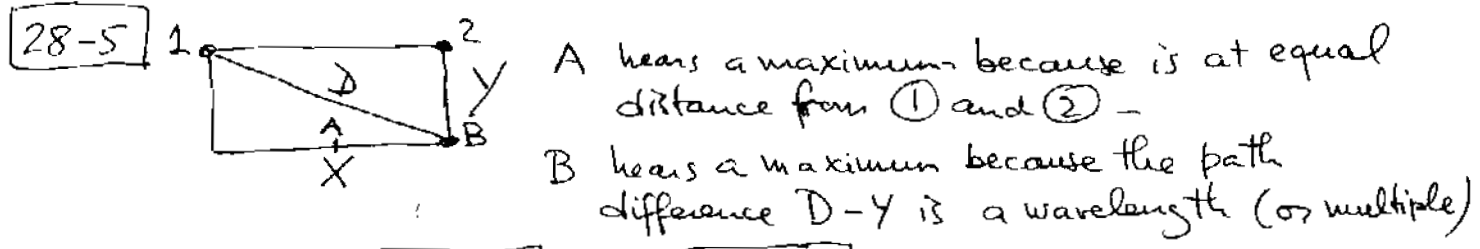 28-5
1 2
D Y
A B
X
A hears a maximum because is at equal
distance from ① and ② -
B hears a maximum because the path
difference D-Y is a wavelength (or multiple)